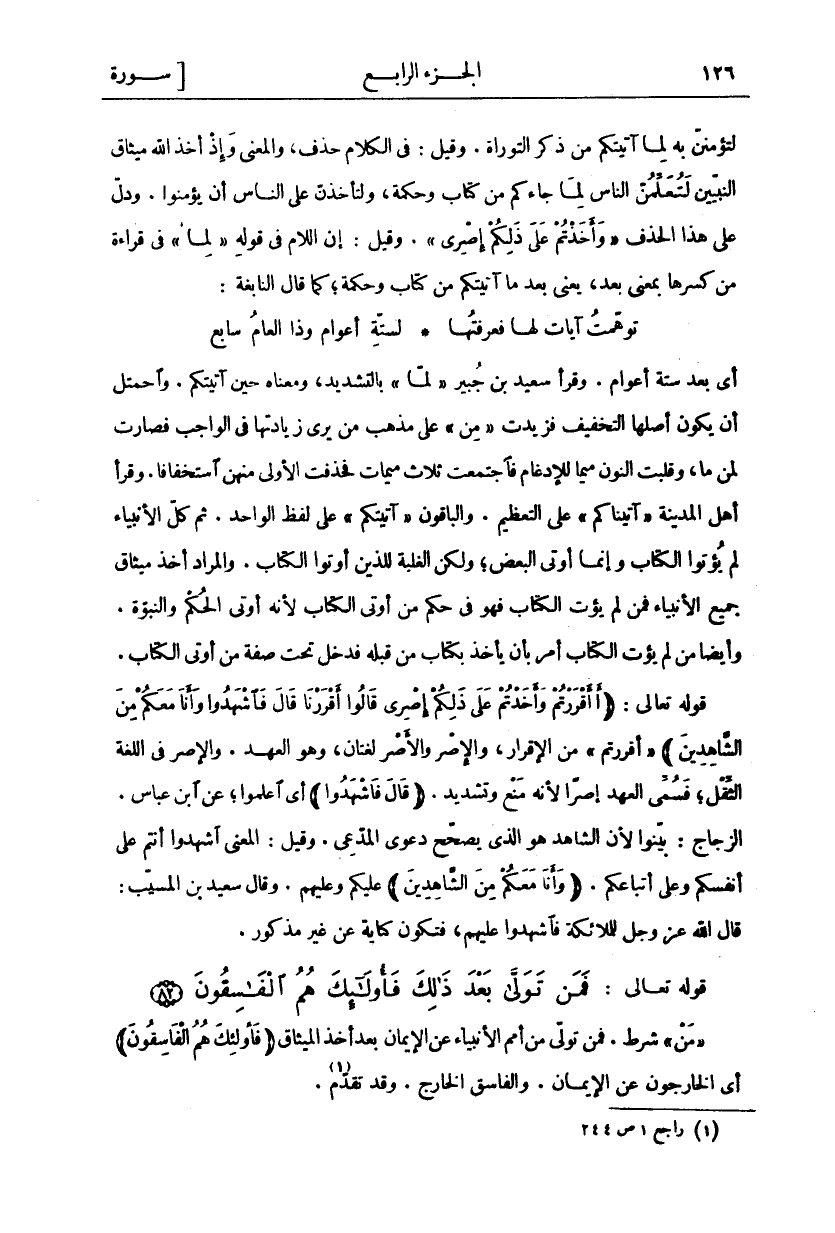 ١٢٦ الجـزء الرابـع [ سـورة
لتؤمننّ به لِما آتيتكم من ذكر التوراة . وقيل : فى الكلام حذف، والمعنى وَإِذْ أخذ الله ميثاق
النبيّين لَتُعَلِّمُنّ الناس لِمَا جاءكم من كتاب وحكمة، ولتأخذنّ على النـاس أن يؤمنوا . ودلّ
على هذا الحذف « وَأَخَذْتُمْ عَلَى ذَلِكُمْ إِصْرِى » . وقيل : إن اللام فى قوله « لِمـا » فى قراءة
من كسرها بمعنى بعد، يعنى بعد ما آتيتكم من كتاب وحكمة؛ كما قال النابغة :
توهّمتُ آيات لهـا فعرفتُهـا * لستّةِ أعوام وذا العامُ سابع
أى بعد ستة أعوام . وقرأ سعيد بن جُبير « لمّـا » بالتشديد، ومعناه حين آتيتكم . وٱحتمل
أن يكون أصلها التخفيف فزيدت « مِن » على مذهب من يرى زيادتها فى الواجب فصارت
لمن ما، وقلبت النون ميما للإدغام فٱجتمعت ثلاث ميمات فحذفت الأولى منهن ٱستخفافا. وقرأ
أهل المدينة « آتيناكم » على التعظيم . والباقون « آتيتكم » على لفظ الواحد . ثم كلّ الأنبياء
لم يُؤتوا الكتاب وإنمـا أوتى البعض؛ ولكن الغلبة للذين أوتوا الكتاب . والمراد أخذ ميثاق
جميع الأنبياء فمن لم يؤت الكتاب فهو فى حكم من أوتى الكتاب لأنه أوتى الحُكْم والنبوّة .
وأيضا من لم يؤت الكتاب أمر بأن يأخذ بكتاب من قبله فدخل تحت صفة من أوتى الكتاب .
قوله تعالى : ﴿أَأَقْرَرْتُمْ وَأَخَذْتُمْ عَلَى ذَلِكُمْ إِصْرِى قَالُوا أَقْرَرْنَا قَالَ فَٱشْهَدُوا وَأَنَا مَعَكُمْ مِنَ
الشَّاهِدِينَ ﴾ « أقررتم » من الإقرار، والإصْر والأَصْر لغتان، وهو العهـد . والإصر فى اللغة
الثِّقْل؛ فَسُمِّى العهد إصرًا لأنه مَنْع وتشديد . ﴿ قَالَ فَاشْهَدُوا ﴾ أى ٱعلموا؛ عن ٱبن عباس .
الزجاج : بيّنوا لأن الشاهد هو الذى يصحّح دعوى المدّعِى . وقيل : المعنى ٱشهدوا أنتم على
أنفسكم وعلى أتباعكم . ﴿ وَأَنَا مَعَكُمْ مِنَ الشَّاهِدِينَ ﴾ عليكم وعليهم . وقال سعيد بن المسيّب :
قال الله عز وجل لللائكة فٱشهدوا عليهم، فتكون كناية عن غير مذكور .
قوله تعـالى : فَمَن تَوَلَّىٰ بَعْدَ ذَٰلِكَ فَأُولَـٰٓئِكَ هُمُ ٱلْفَـٰسِقُونَ ٨٢
« مَنْ » شرط . فمن تولّى من أمم الأنبياء عن الإيمان بعد أخذ الميثاق ﴿ فَأُولَئِكَ هُمُ الْفَاسِقُونَ ﴾
أى الخارجون عن الإيمـان . والفاسق الخارج . وقد تقدّم(١) .
(١) راجع ١ ص ٢٤٤